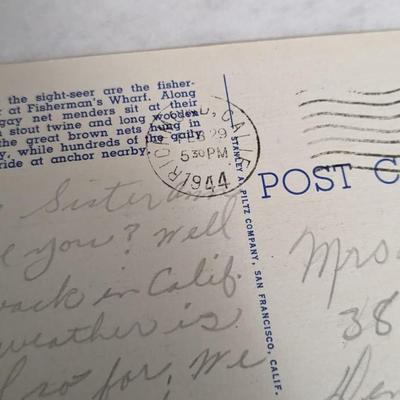 the sight-seer are the fisher-
at Fisherman's Wharf. Along
gay net menders sit at their
stout twine and long wooden
the great brown nets hung in
y, while hundreds of the gaily
ride at anchor nearby.
CALIF.
FEB 29
5 30 PM
1944
STANLEY A. PILTZ COMPANY, SAN FRANCISCO, CALIF.
POST C
Sister and
you? Well
back in Calif.
weather is
so far, We
Mrs.
38
Den